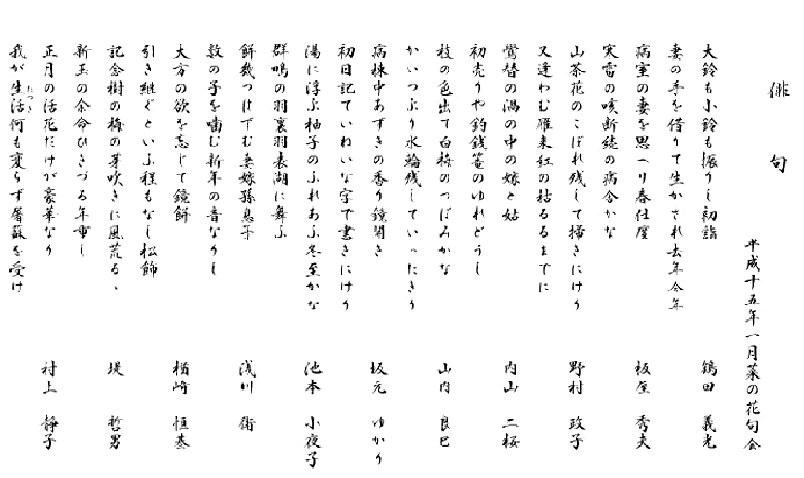 俳句
平成十五年一月菜の花句会
大鈴も小鈴も振りし初詣
鶴田 義光
妻の手を借りて生かされ去年今年
病室の妻を思へり春仕度
板屋 秀夫
寒雷の咳断続の病舎かな
山茶花のこぼれ残して掃きにけり
野村 政子
又逢わむ雁来紅の枯るるまでに
鷽替の渦の中の嫁と姑
内山 二桜
初売りや釣銭篭のゆれどうし
枝の色出て白梅のつぼみかな
山内 良巳
かいつぶり水輪残していつたきり
病棟中あずきの香り鏡開き
坂元 ゆかり
初日記ていねいな字で書きにけり
湯に浮ぶ柚子のふれあふ冬至かな
池本 小夜子
群鴨の羽裏羽表湖に舞ふ
餅幾つ付けてむ妻嫁孫息子
浅川
数の子を噛む新年の音なりし
大方の欲を忘じて鏡餅
楢崎 恒基
引き継ぐといふ程もなし松飾
記念樹の梅の芽吹きに風荒るゝ
堤 哲男
新玉の余命ひきづる年重し
正月の活花だけが豪華なり
村上 静子
我が生活何も変らず屠蘇を受け
たつき